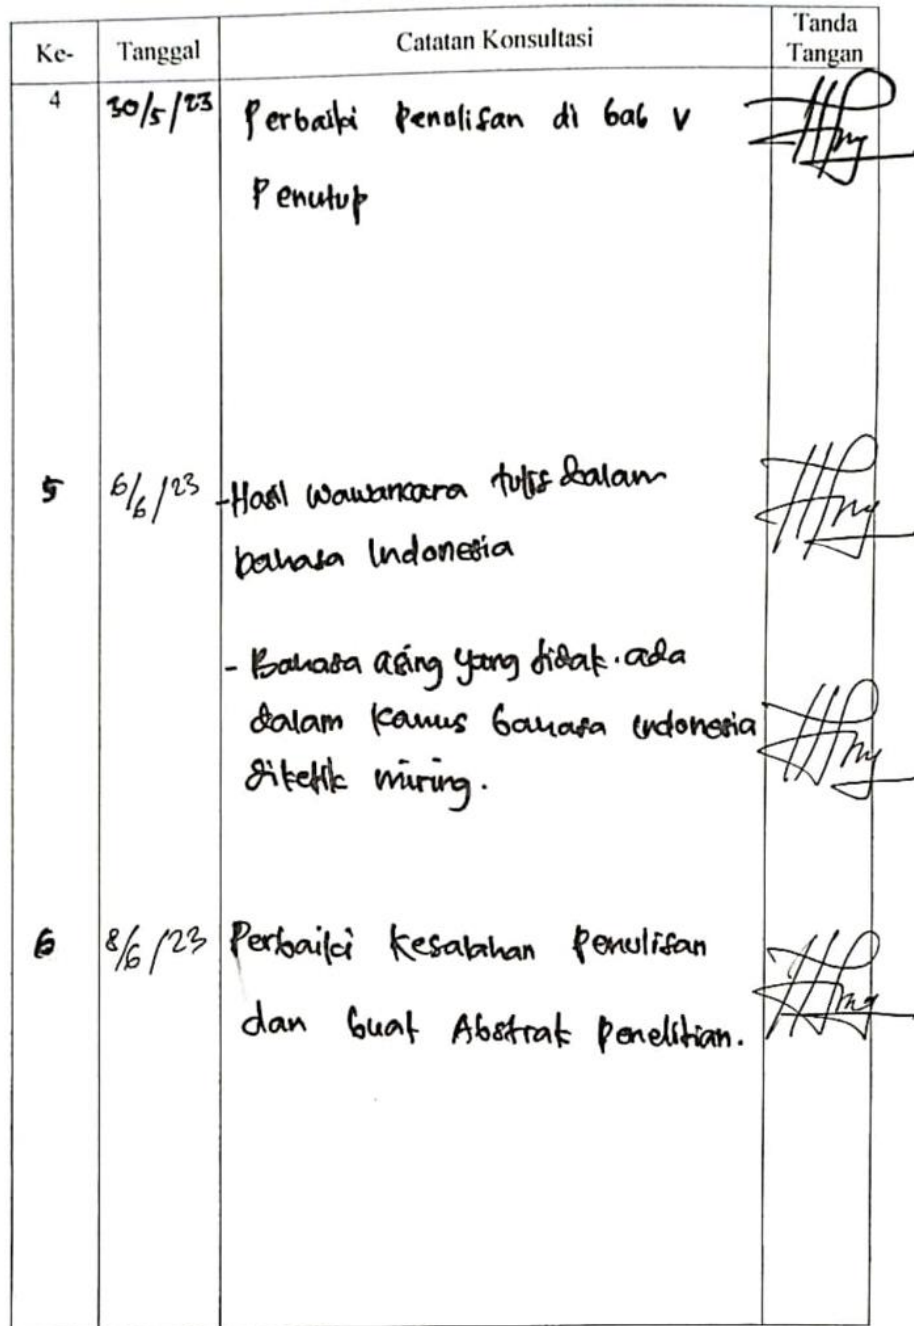 Ke- Tanggal Catatan Konsultasi Tanda Tangan
4 30/5/23 Perbaiki Penulisan di bab V
Penutup
5 6/6/23 - Hasil wawancara tulis dalam
bahasa Indonesia
- Bahasa asing yang tidak ada
dalam kamus bahasa indonesia
diketik miring.
6 8/6/23 Perbaiki kesalahan Penulisan
dan buat Abstrak Penelitian.